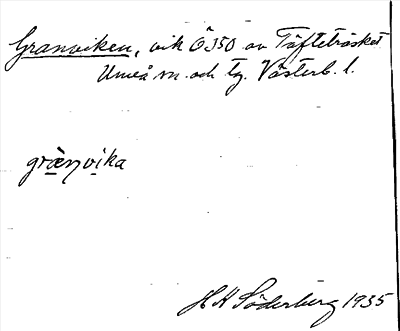 Granviken, vik ÖJ50 av Täfteträsket
Umeå sn. och tg. Västerb. l.
græ̀nvika
H H Söderberg 1935